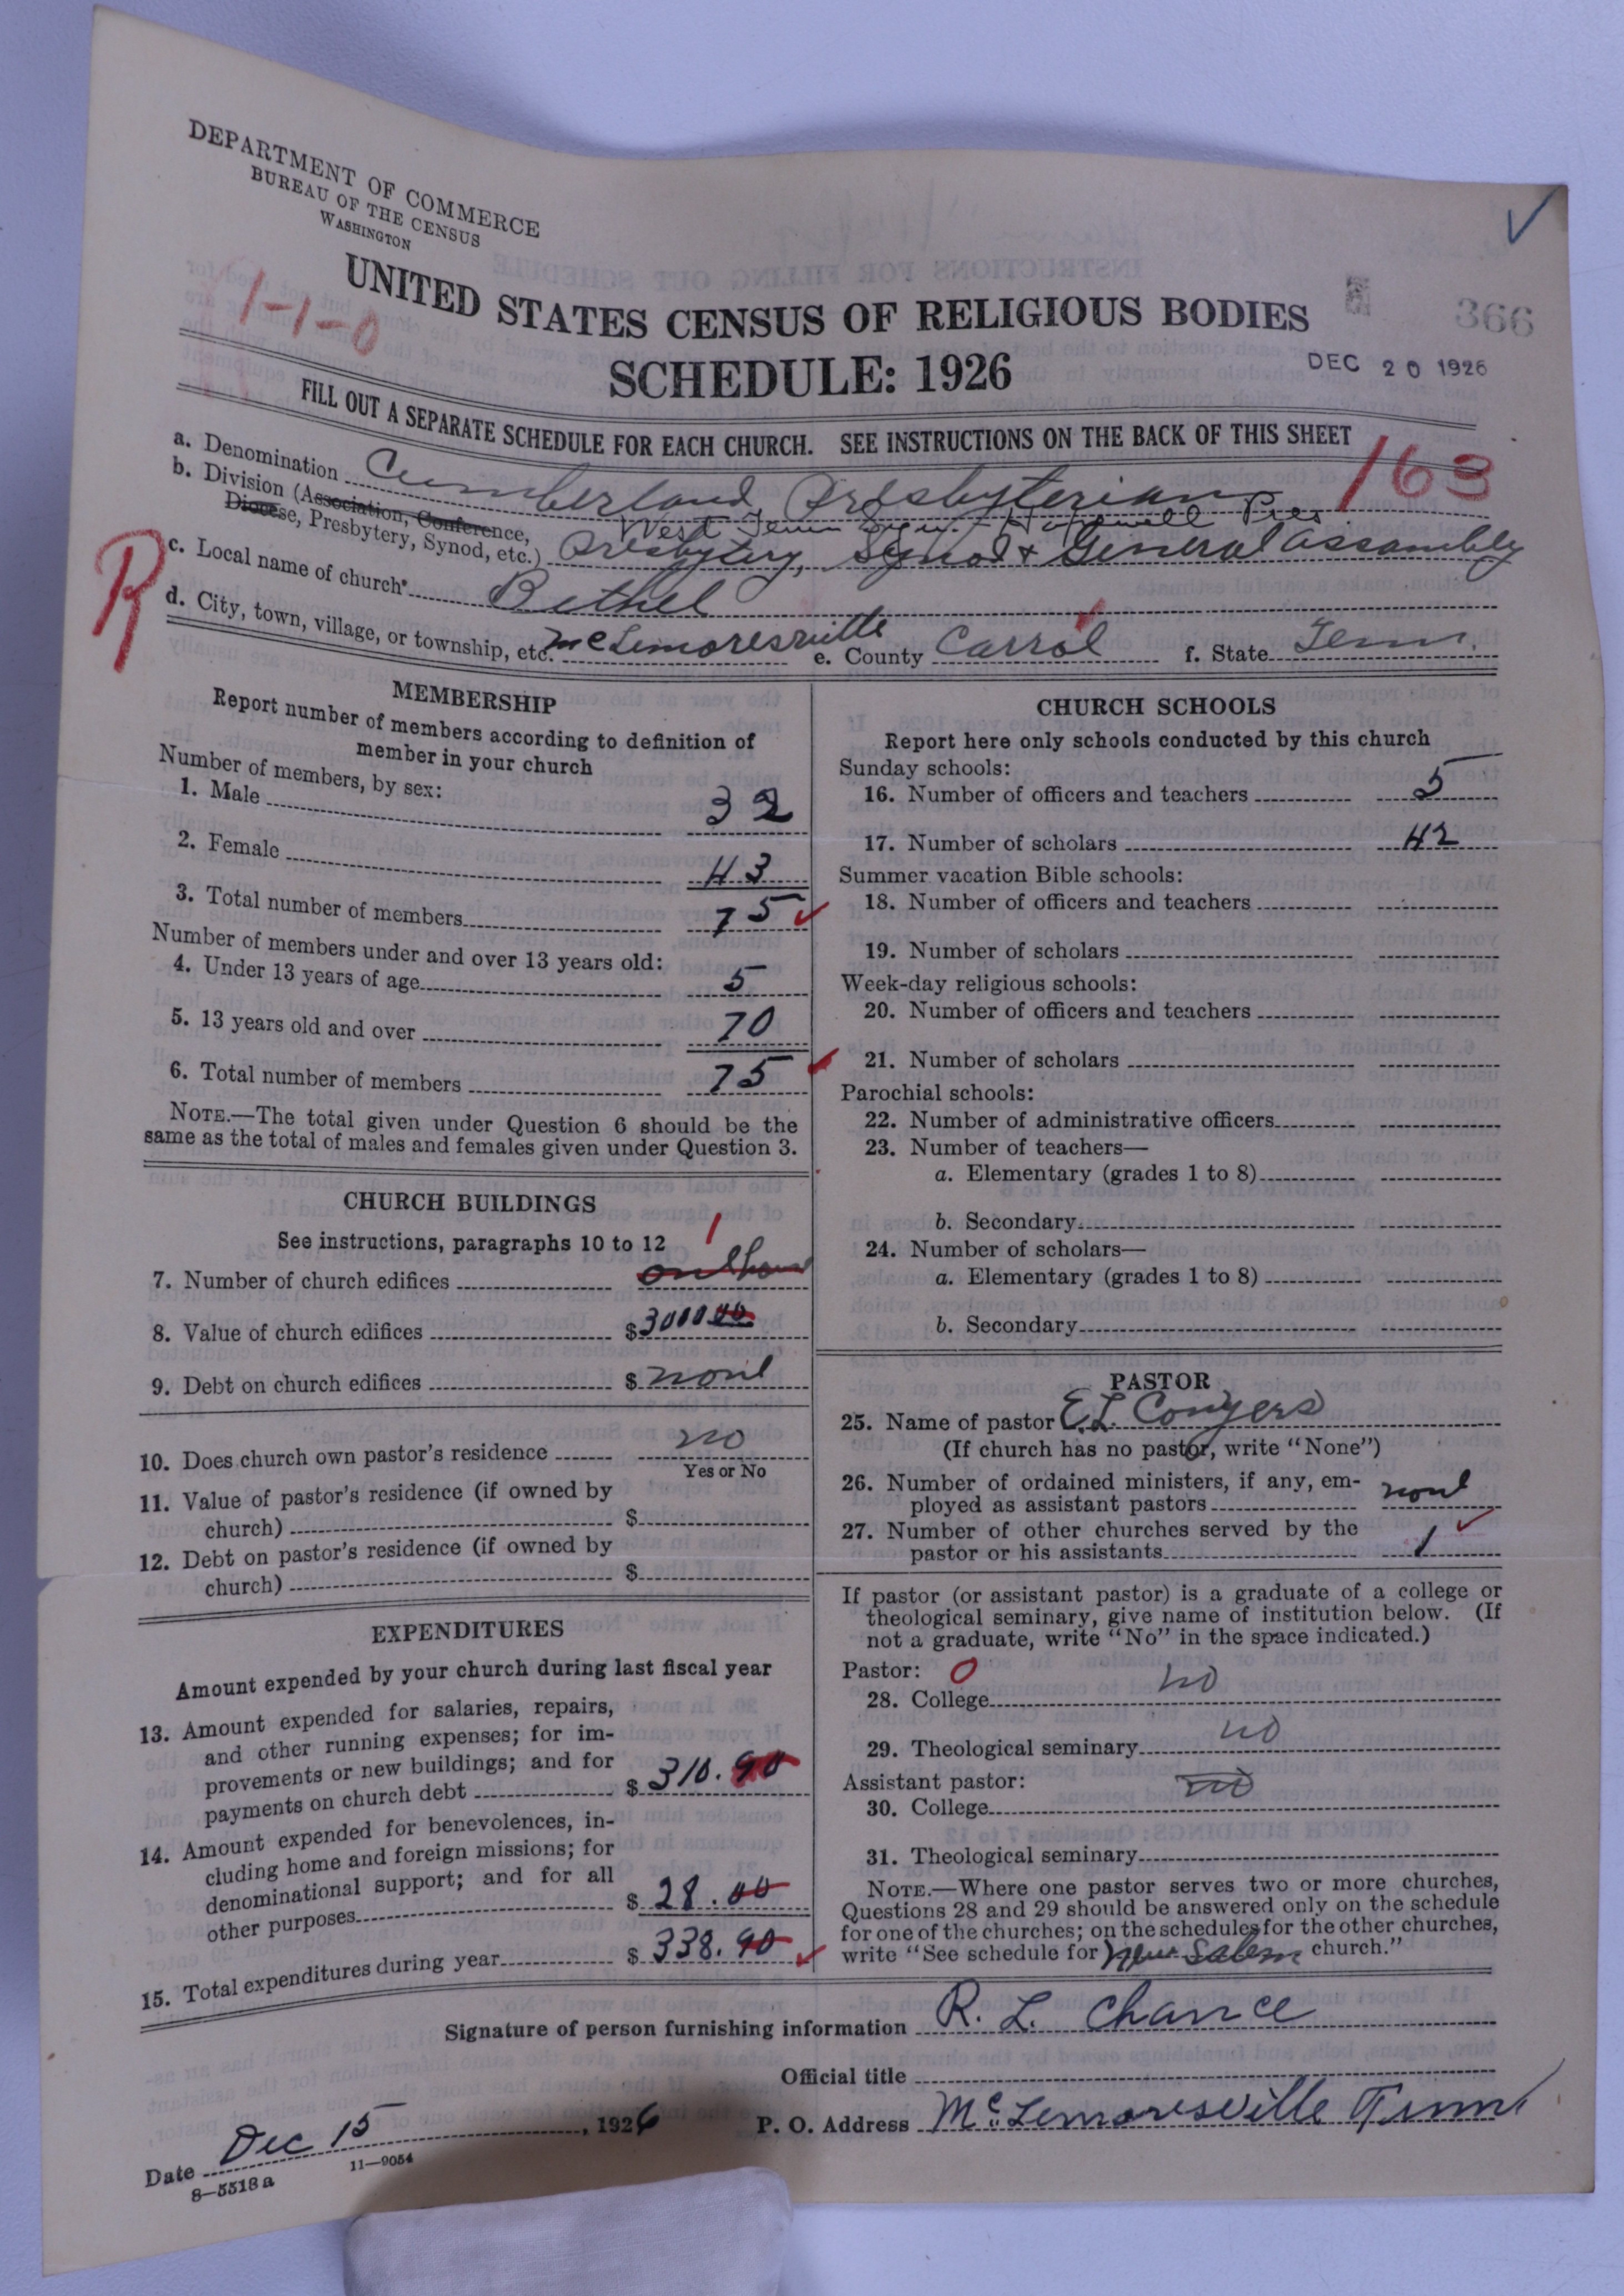 DEPARTMENT OF COMMERCE
BUREAU OF THE CENSUS
WASHINGTON
UNITED STATES CENSUS OF RELIGIOUS BODIES
SCHEDULE: 1926
1-1-0
366
DEC 20 1926
FILL OUT A SEPARATE SCHEDULE FOR EACH CHURCH. SEE INSTRUCTIONS ON THE BACK OF THIS SHEET
163
a. Denomination Cumberland Presbyterian
b. Division (Association, Conference, West Tenn Syn. Hopewell Pres.
Diocese, Presbytery, Synod, etc.) Presbytery, Synod & General Assembly
R
c. Local name of church* Bethel
d. City, town, village, or township, etc. McLemoresville e. County Carrol f. State Tenn.
MEMBERSHIP
Report number of members according to definition of
member in your church
Number of members, by sex:
1. Male 32
2. Female 43
3. Total number of members 75 ✓
Number of members under and over 13 years old:
4. Under 13 years of age 5
5. 13 years old and over 70
6. Total number of members 75
NOTE.—The total given under Question 6 should be the
same as the total of males and females given under Question 3.
CHURCH BUILDINGS
See instructions, paragraphs 10 to 12
7. Number of church edifices 1
8. Value of church edifices $ 3000.00
9. Debt on church edifices $ none
10. Does church own pastor's residence no
Yes or No
11. Value of pastor's residence (if owned by
church) $
12. Debt on pastor's residence (if owned by
church) $
EXPENDITURES
Amount expended by your church during last fiscal year
13. Amount expended for salaries, repairs,
and other running expenses; for im-
provements or new buildings; and for
payments on church debt $ 310.90
14. Amount expended for benevolences, in-
cluding home and foreign missions; for
denominational support; and for all
other purposes $ 28.00
15. Total expenditures during year $ 338.90 ✓
CHURCH SCHOOLS
Report here only schools conducted by this church
Sunday schools:
16. Number of officers and teachers 5
17. Number of scholars 42
Summer vacation Bible schools:
18. Number of officers and teachers
19. Number of scholars
Week-day religious schools:
20. Number of officers and teachers
21. Number of scholars
Parochial schools:
22. Number of administrative officers
23. Number of teachers—
a. Elementary (grades 1 to 8)
b. Secondary
24. Number of scholars—
a. Elementary (grades 1 to 8)
b. Secondary
PASTOR
25. Name of pastor E.L. Conyers
(If church has no pastor, write "None")
26. Number of ordained ministers, if any, em-
ployed as assistant pastors none
27. Number of other churches served by the
pastor or his assistants 1 ✓
If pastor (or assistant pastor) is a graduate of a college or
theological seminary, give name of institution below. (If
not a graduate, write "No" in the space indicated.)
Pastor: 0
28. College no
29. Theological seminary no
Assistant pastor:
30. College no
31. Theological seminary
NOTE.—Where one pastor serves two or more churches,
Questions 28 and 29 should be answered only on the schedule
for one of the churches; on the schedules for the other churches,
write "See schedule for New Salem church."
Signature of person furnishing information R. L. Chance
Official title
Date Dec 15, 1926 P. O. Address McLemoresville Tenn
8-5518a 11-9054